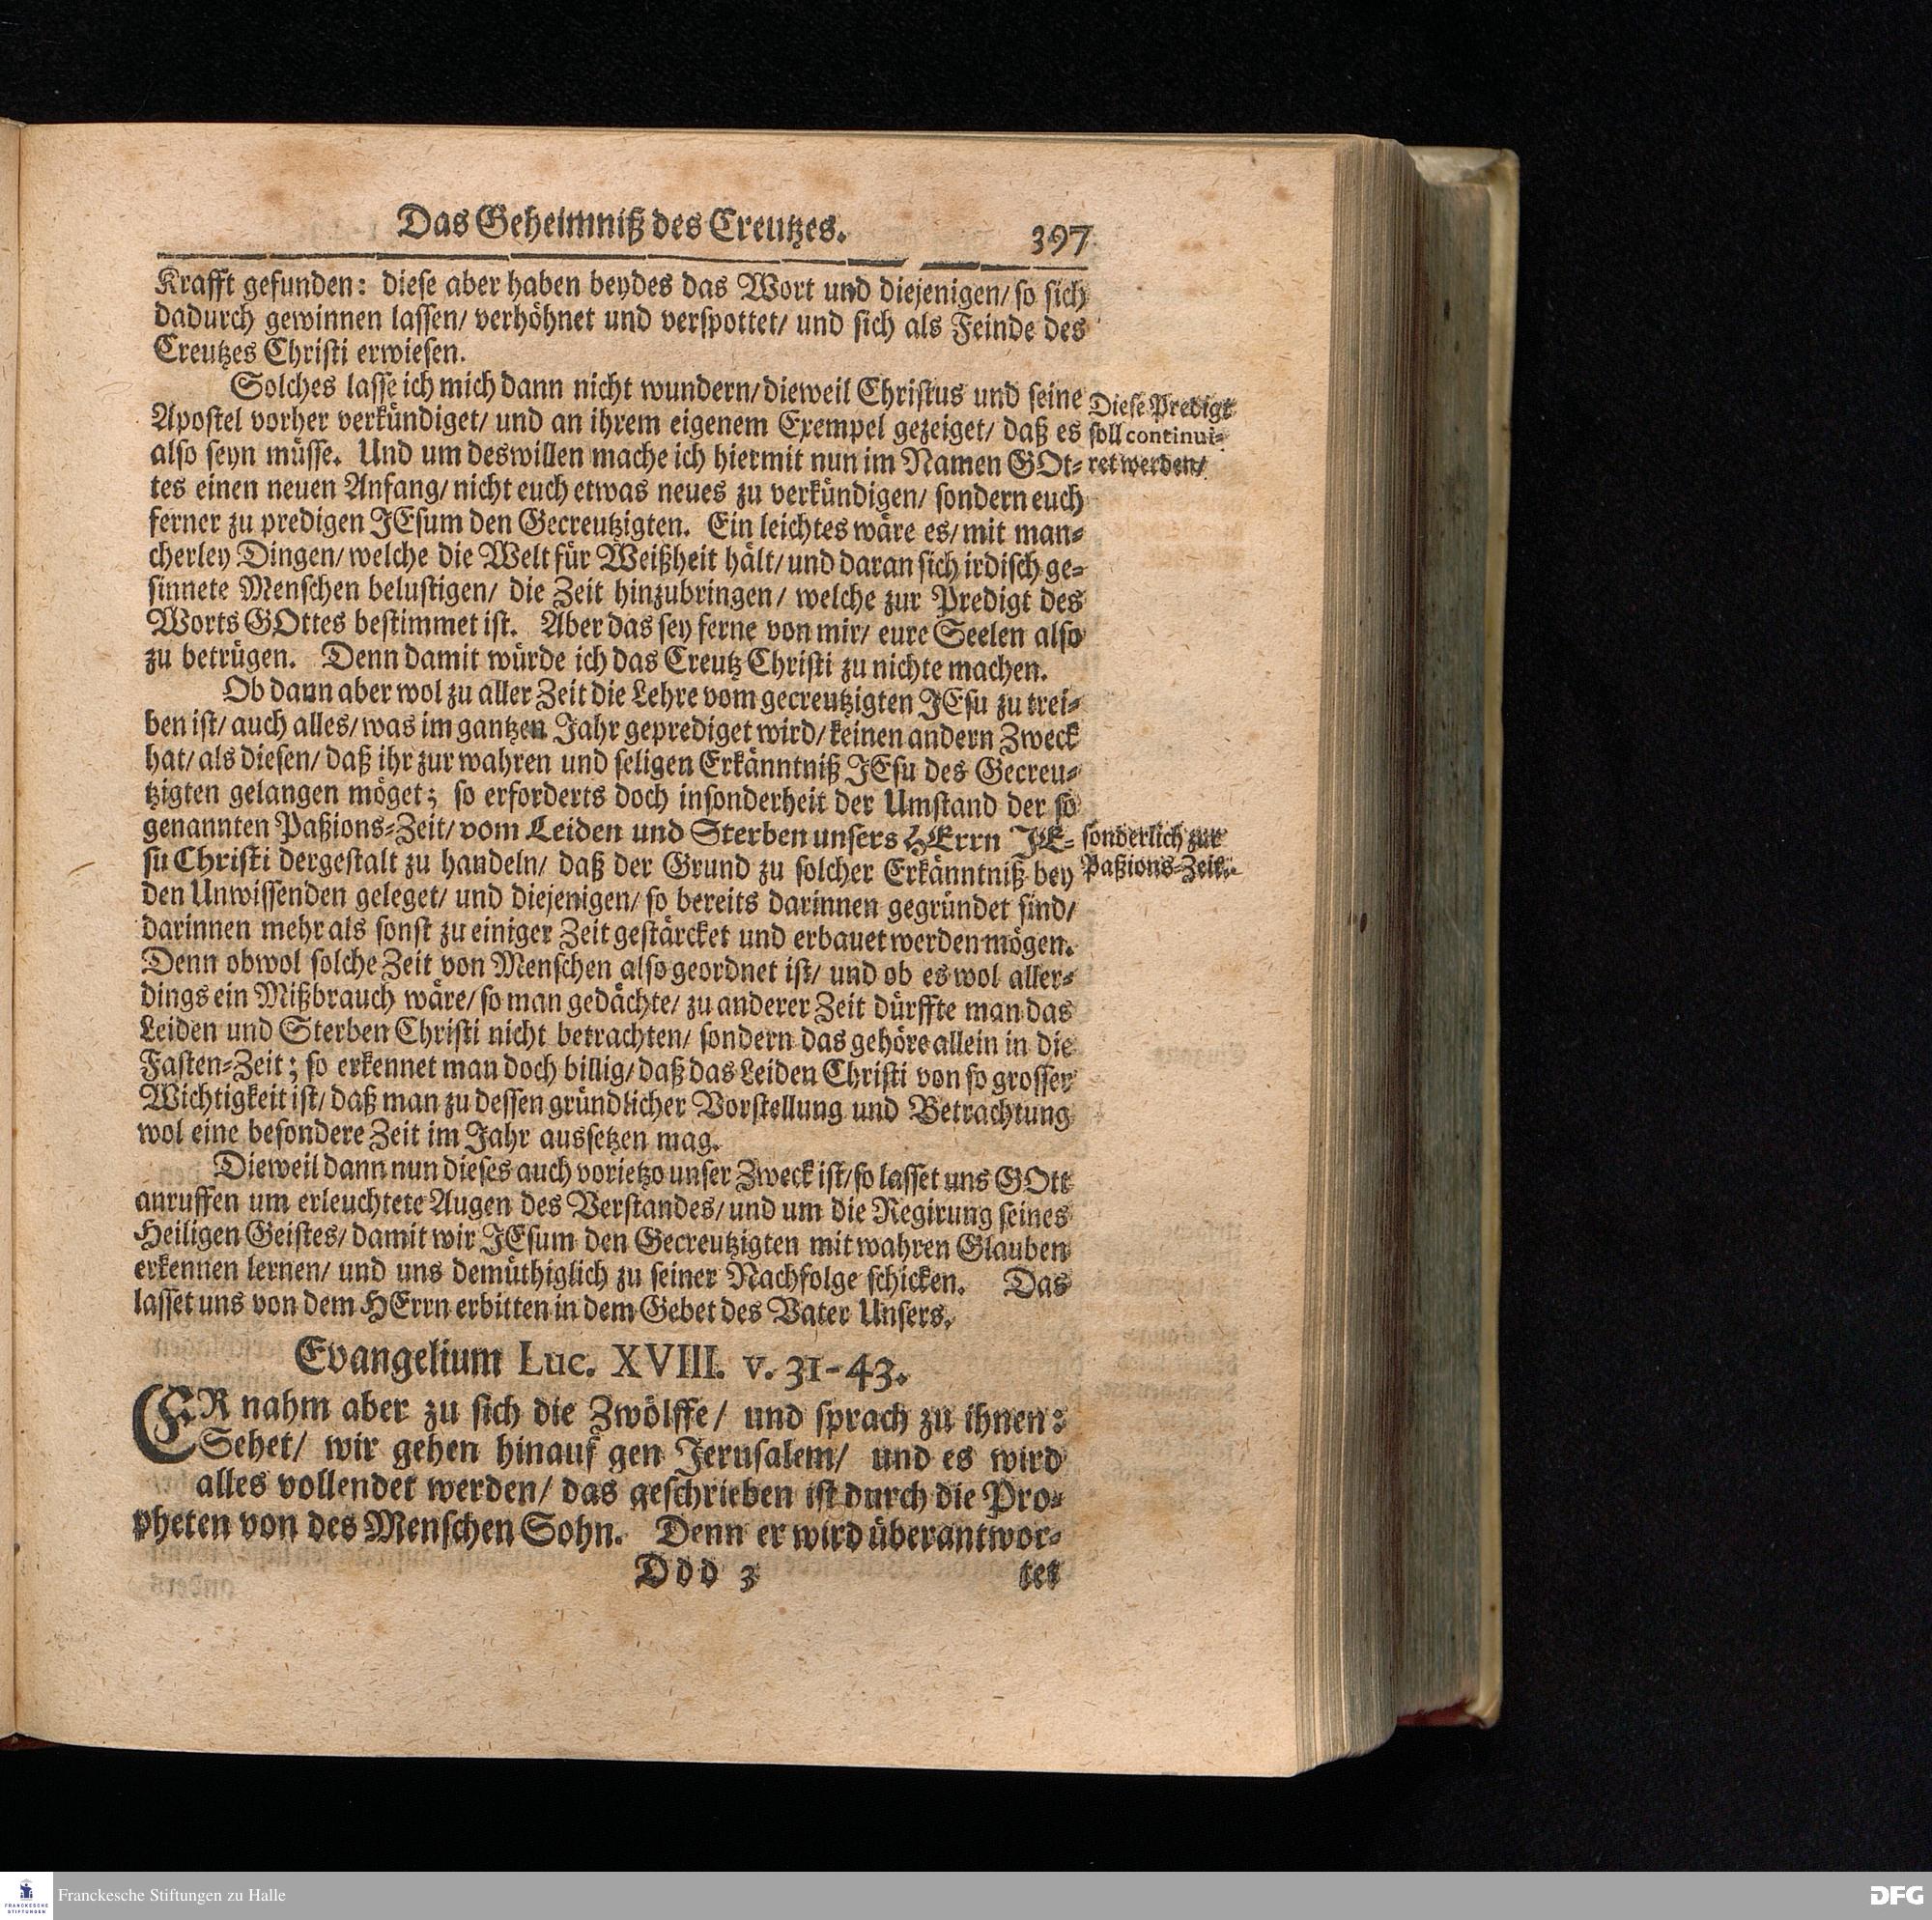 Das Geheimniß des Creutzes. 397
Krafft gefunden: diese aber haben beydes das Wort und diejenigen/ so sich
dadurch gewinnen lassen/ verhöhnet und verspottet/ und sich als Feinde des
Creutzes Christi erwiesen.
Solches lasse ich mich dann nicht wundern/ dieweil Christus und seine
Apostel vorher verkündiget/ und an ihrem eigenem Exempel gezeiget/ daß es
also seyn müsse. Und um deswillen mache ich hiermit nun im Namen GOt-
tes einen neuen Anfang/ nicht euch etwas neues zu verkündigen/ sondern euch
ferner zu predigen JEsum den Gecreutzigten. Ein leichtes wäre es/ mit man-
cherley Dingen/ welche die Welt für Weißheit hält/ und daran sich irdisch ge-
sinnete Menschen belustigen/ die Zeit hinzubringen/ welche zur Predigt des
Worts GOttes bestimmet ist. Aber das sey ferne von mir/ eure Seelen also
zu betrügen. Denn damit würde ich das Creutz Christi zu nichte machen.
Diese Predigt
soll continui-
ret werden/
Ob dann aber wol zu aller Zeit die Lehre vom gecreutzigten JEsu zu trei-
ben ist/ auch alles/ was im gantzen Jahr geprediget wird/ keinen andern Zweck
hat/ als diesen/ daß ihr zur wahren und seligen Erkänntniß JEsu des Gecreu-
tzigten gelangen möget; so erforderts doch insonderheit der Umstand der so
genannten Paßions-Zeit/ vom Leiden und Sterben unsers HErrn JE-
su Christi dergestalt zu handeln/ daß der Grund zu solcher Erkänntniß bey
den Unwissenden geleget/ und diejenigen/ so bereits darinnen gegründet sind/
darinnen mehr als sonst zu einiger Zeit gestärcket und erbauet werden mögen.
Denn obwol solche Zeit von Menschen also geordnet ist/ und ob es wol aller-
dings ein Mißbrauch wäre/ so man gedächte/ zu anderer Zeit dürffte man das
Leiden und Sterben Christi nicht betrachten/ sondern das gehöre allein in die
Fasten-Zeit; so erkennet man doch billig/ daß das Leiden Christi von so grosser
Wichtigkeit ist/ daß man zu dessen gründlicher Vorstellung und Betrachtung
wol eine besondere Zeit im Jahr aussetzen mag.
sonderlich zur
Paßions-Zeit.
Dieweil dann nun dieses auch vorietzo unser Zweck ist/ so lasset uns GOtt
anruffen um erleuchtete Augen des Verstandes/ und um die Regirung seines
Heiligen Geistes/ damit wir JEsum den Gecreutzigten mit wahren Glauben
erkennen lernen/ und uns demüthiglich zu seiner Nachfolge schicken. Das
lasset uns von dem HErrn erbitten in dem Gebet des Vater Unsers.
Evangelium Luc. XVIII. v. 31-43.
ER nahm aber zu sich die Zwölffe/ und sprach zu ihnen:
Sehet/ wir gehen hinauf gen Jerusalem/ und es wird
alles vollendet werden/ das geschrieben ist durch die Pro-
pheten von des Menschen Sohn. Denn er wird überantwor-
Ddd 3 tet
Franckesche Stiftungen zu Halle
FRANCKESCHE
STIFTUNGEN
DFG